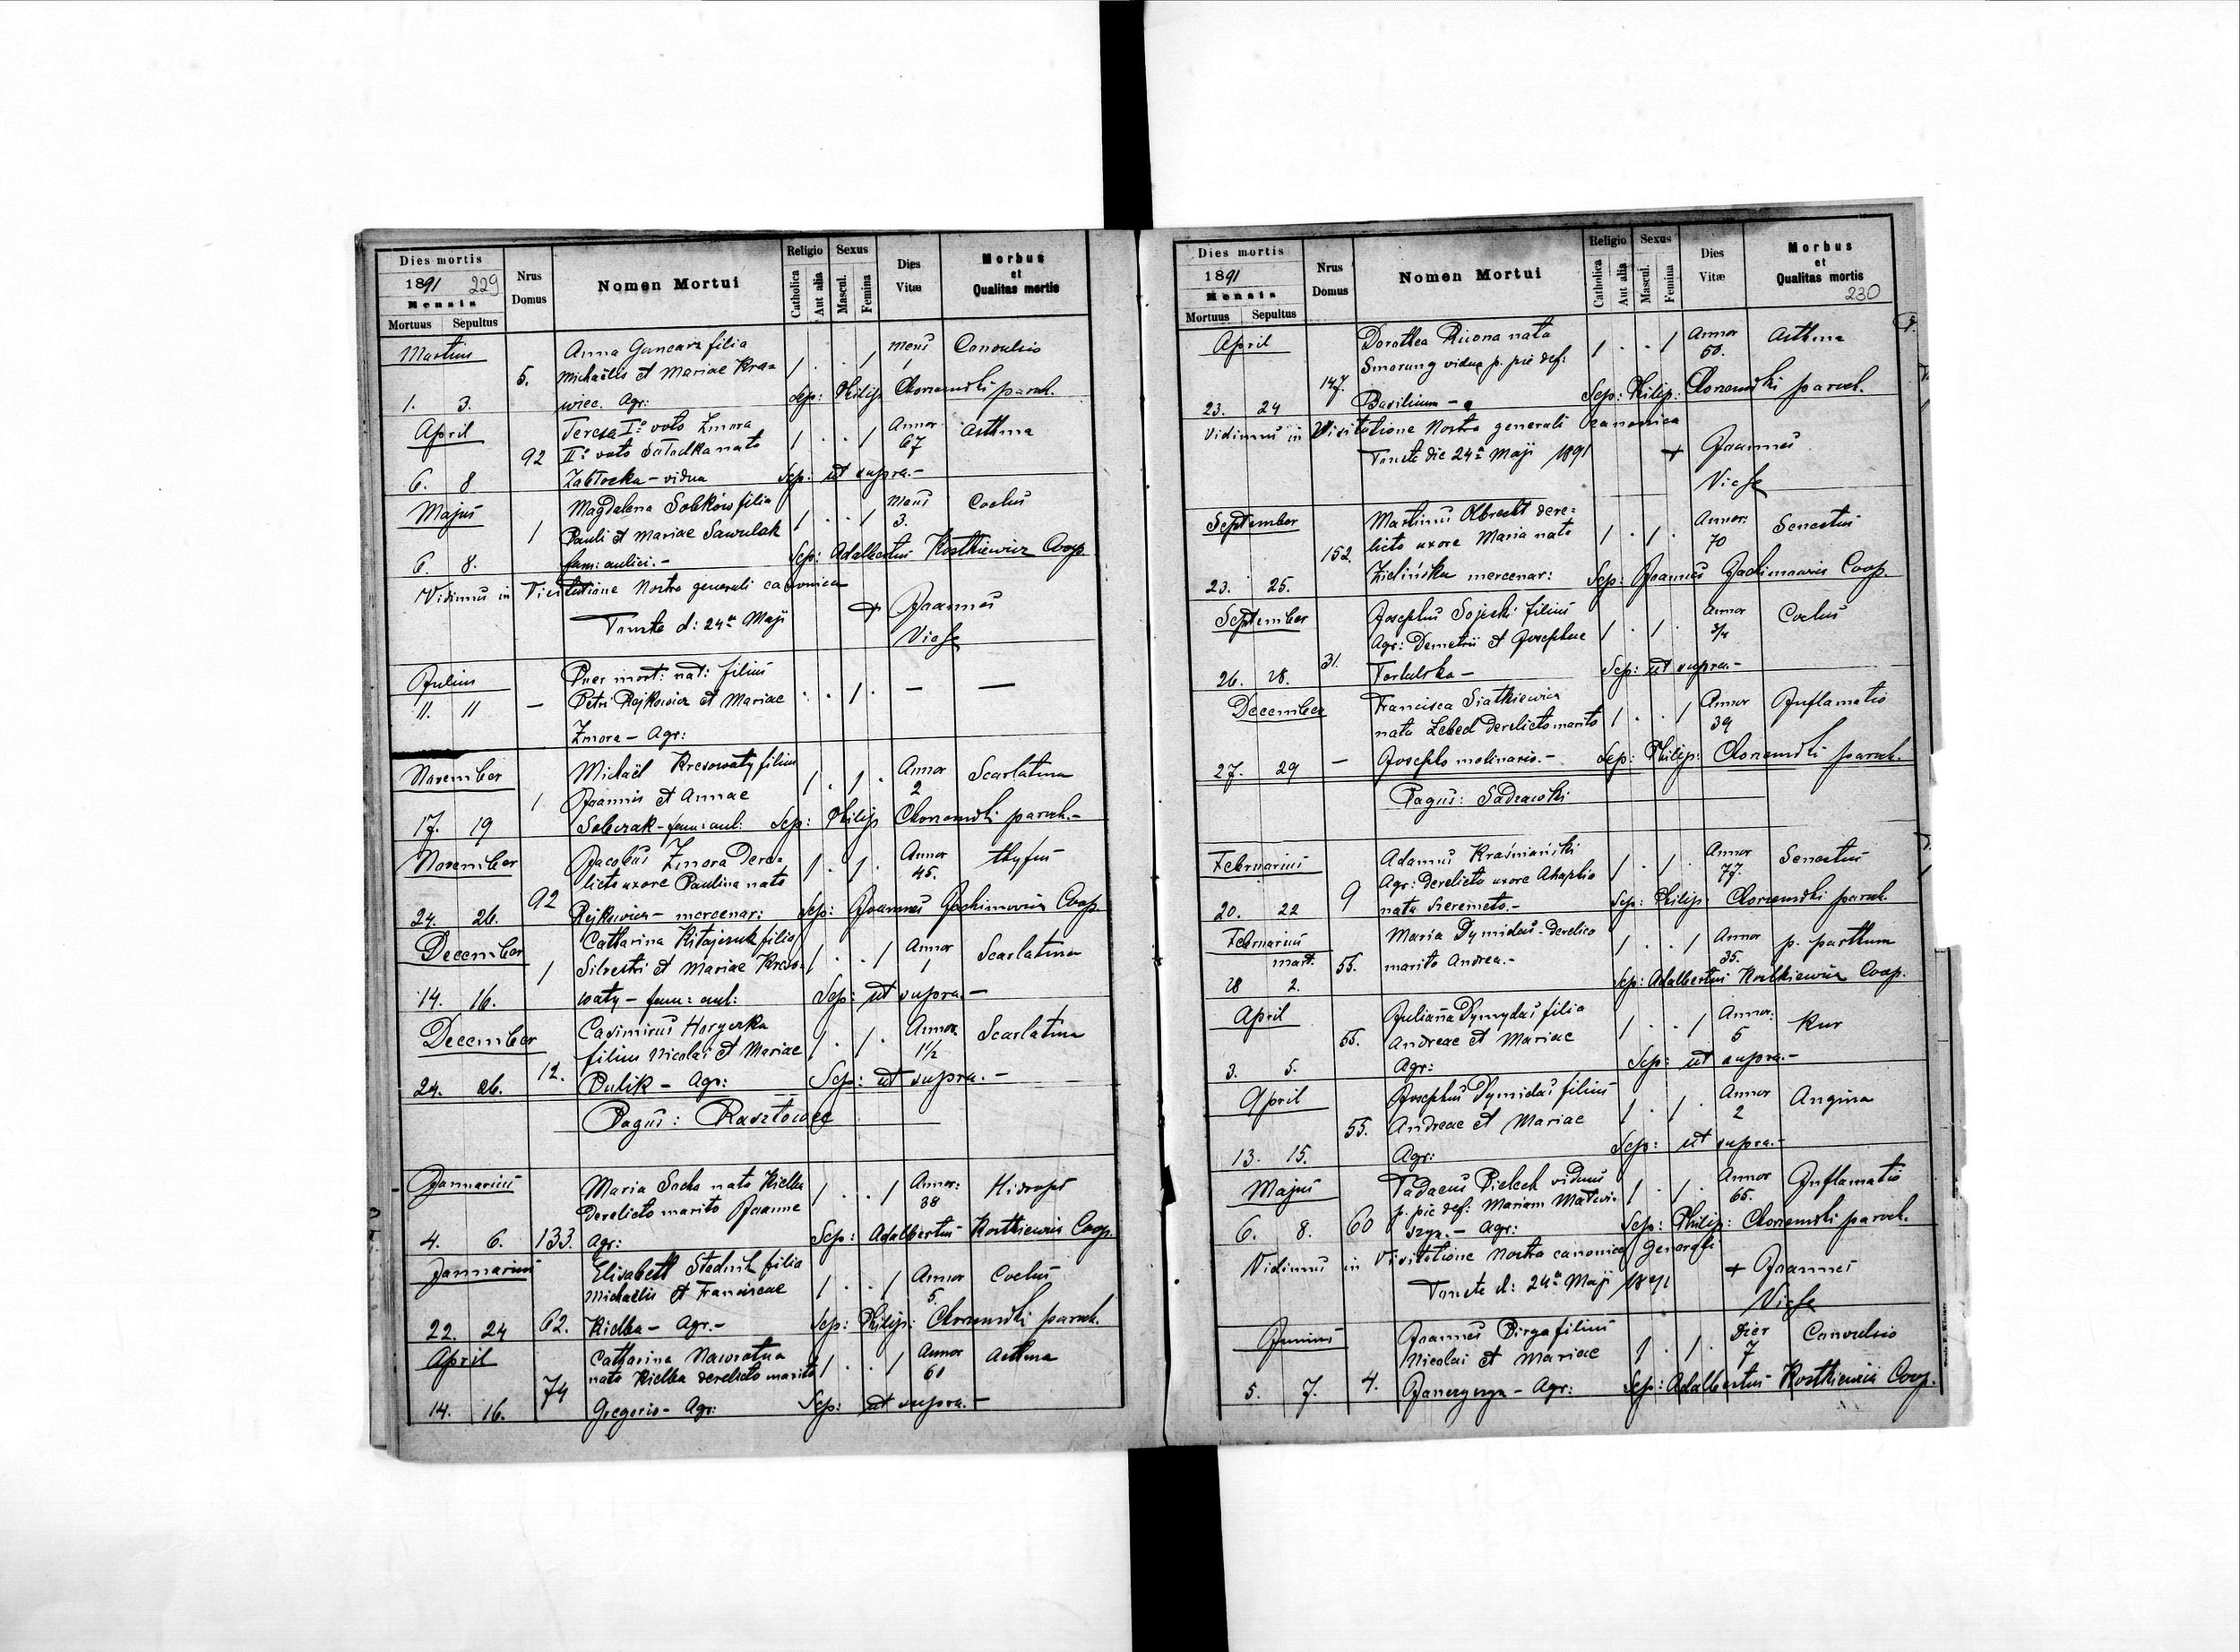 Dies mortis
1891 229
Mensis
Mortuus Sepultus
Nrus Domus
Nomen Mortui
Religio
Catholica
Aut alia
Sexus
Mascul.
Femina
Dies Vitæ
Morbus et Qualitas mortis
Martius Anna Gancarz filia mens Convulsio
5. Michaëlis et Mariae Kra= 1 . . 1 1
1. 3. wiec. Agr: Sep: Philip parch.
April Teresa I° voto Zmora Annor Asthma
92 II° voto nata 1 . . 1 67
6. 8 Zabłocka - vidua Sep: ut supra.-
Majus Magdalena Sobków filia mens Coclus
1 Pauli et Mariae Sawulak 1 . . 1 3.
6. 8. fam: aulici.- Sep: Adalbertus Kostkiewicz Coop.
Vidimus in Visitatione Nostra generali canonica
Touste d: 24a Maji + Joannes
Julius Puer mort: nat: filius
11. 11 - Petri Rejkowicz et Mariae . . 1 . - -
Zmora - Agr:
November Michaël Kresowaty filius Annor Scarlatina
1 Joannis et Annae 1 . 1 . 2
17. 19 Sobczak - fam: aul: Sep: Philip parch.-
November Jacobus Zmora Dere= Annor thyfus
92 licta uxore Paulina nata 1 . 1 . 45.
24. 26. Rejkowicz - mercenar: Sep: Joannes Jachimowicz Coop.
December Catharina Kitajczuk filia Annor Scarlatina
1 Silvestri et Mariae Kreso= 1 . . 1 1
14. 16. waty - fam: aul: Sep: ut supra.-
December Casimirus Horyczka Annor Scarlatina
12. filius Nicolai et Mariae 1 . 1 . 1 1/2
24. 26. Dulik - Agr: Sep: ut supra.-
Pagus: Rasztowce
Januarius Maria Socha nata Kielba Annor: Hidrops
derelicto marito Joanne 1 . . 1 38
4. 6. 133. Agr: Sep: Adalbertus Kostkiewicz Coop.
Januarius Elisabeth Stadnik filia Annor Coclus
Michaëlis et Franciscae 1 . . 1 5.
22. 24 62. Kielba - Agr.- Sep: Philip: parch.
April Catharina Nawrotna Annor Asthma
74 nata Kielba derelicto marito 1 . . 1 61
14. 16. Gregorio - Agr: Sep: ut supra.-
Dies mortis
1891
Mensis
Mortuus Sepultus
Nrus Domus
Nomen Mortui
Religio
Catholica
Aut alia
Sexus
Mascul.
Femina
Dies Vitæ
Morbus et Qualitas mortis
230
April Dorothea nata Annor Asthma
147. vidua p. pie def: 1 . . 1 50.
23. 24 Basilium - Sep: Philip: parch.
Vidimus in Visitatione Nostra generali canonica
Touste die 24a Maji 1891 + Joannes
September Martinus Olbrecht dere= Annor: Senectus
152. licta uxore Maria nata 1 . 1 . 70
23. 25. Zielińska mercenar: Sep: Joannes Jachimowicz Coop.
September Josephus Sojecki filius Annor Coclus
31. Agr: Demetrii et Josephae 1 . 1 . 3/4
26. 28. Sep: ut supra.-
December Francisca Siatkiewicz Annor Inflamatio
nata Lebed derelicto marito 1 . . 1 39
27. 29 - Josepho molinario.- Sep: Philip: parch.
Pagus: Sadzawki
Februarius Adamus Kraśniański Annor Senectus
9 Agr: derelicta uxore Ahaphia 1 . 1 . 77.
20. 22 nata Szeremeta.- Sep: Philip: parch.
Februarius Maria Dymidas - derelico Annor p. parthum
mart. 55. marito Andrea.- 1 . . 1 35.
28 2. Sep: Adalbertus Kostkiewicz Coop.
April Julianna Dymydas filia Annor: Kur
55. Andreae et Mariae 1 . . 1 5
3. 5. Agr: Sep: ut supra.-
April Josephus Dymidas filius Annor Angina
55. Andreae et Mariae 1 . 1 . 2
13. 15. Agr: Sep: ut supra.-
Majus Tadaeus Pielech viduus Annor Inflamatio
p. pie def: Mariam 1 . 1 . 65.
6. 8. 60 - Agr: Sep: Philip: parch.
Vidimus in Visitatione Nostra canonica generali
Touste d: 24a Maji 1891 + Joannes
Junius Joannes Dirga filius Dier Convulsio
Nicolai et Mariae 1 . 1 . 7
5. 7. 4. - Agr: Sep: Adalbertus Kostkiewicz Coop.